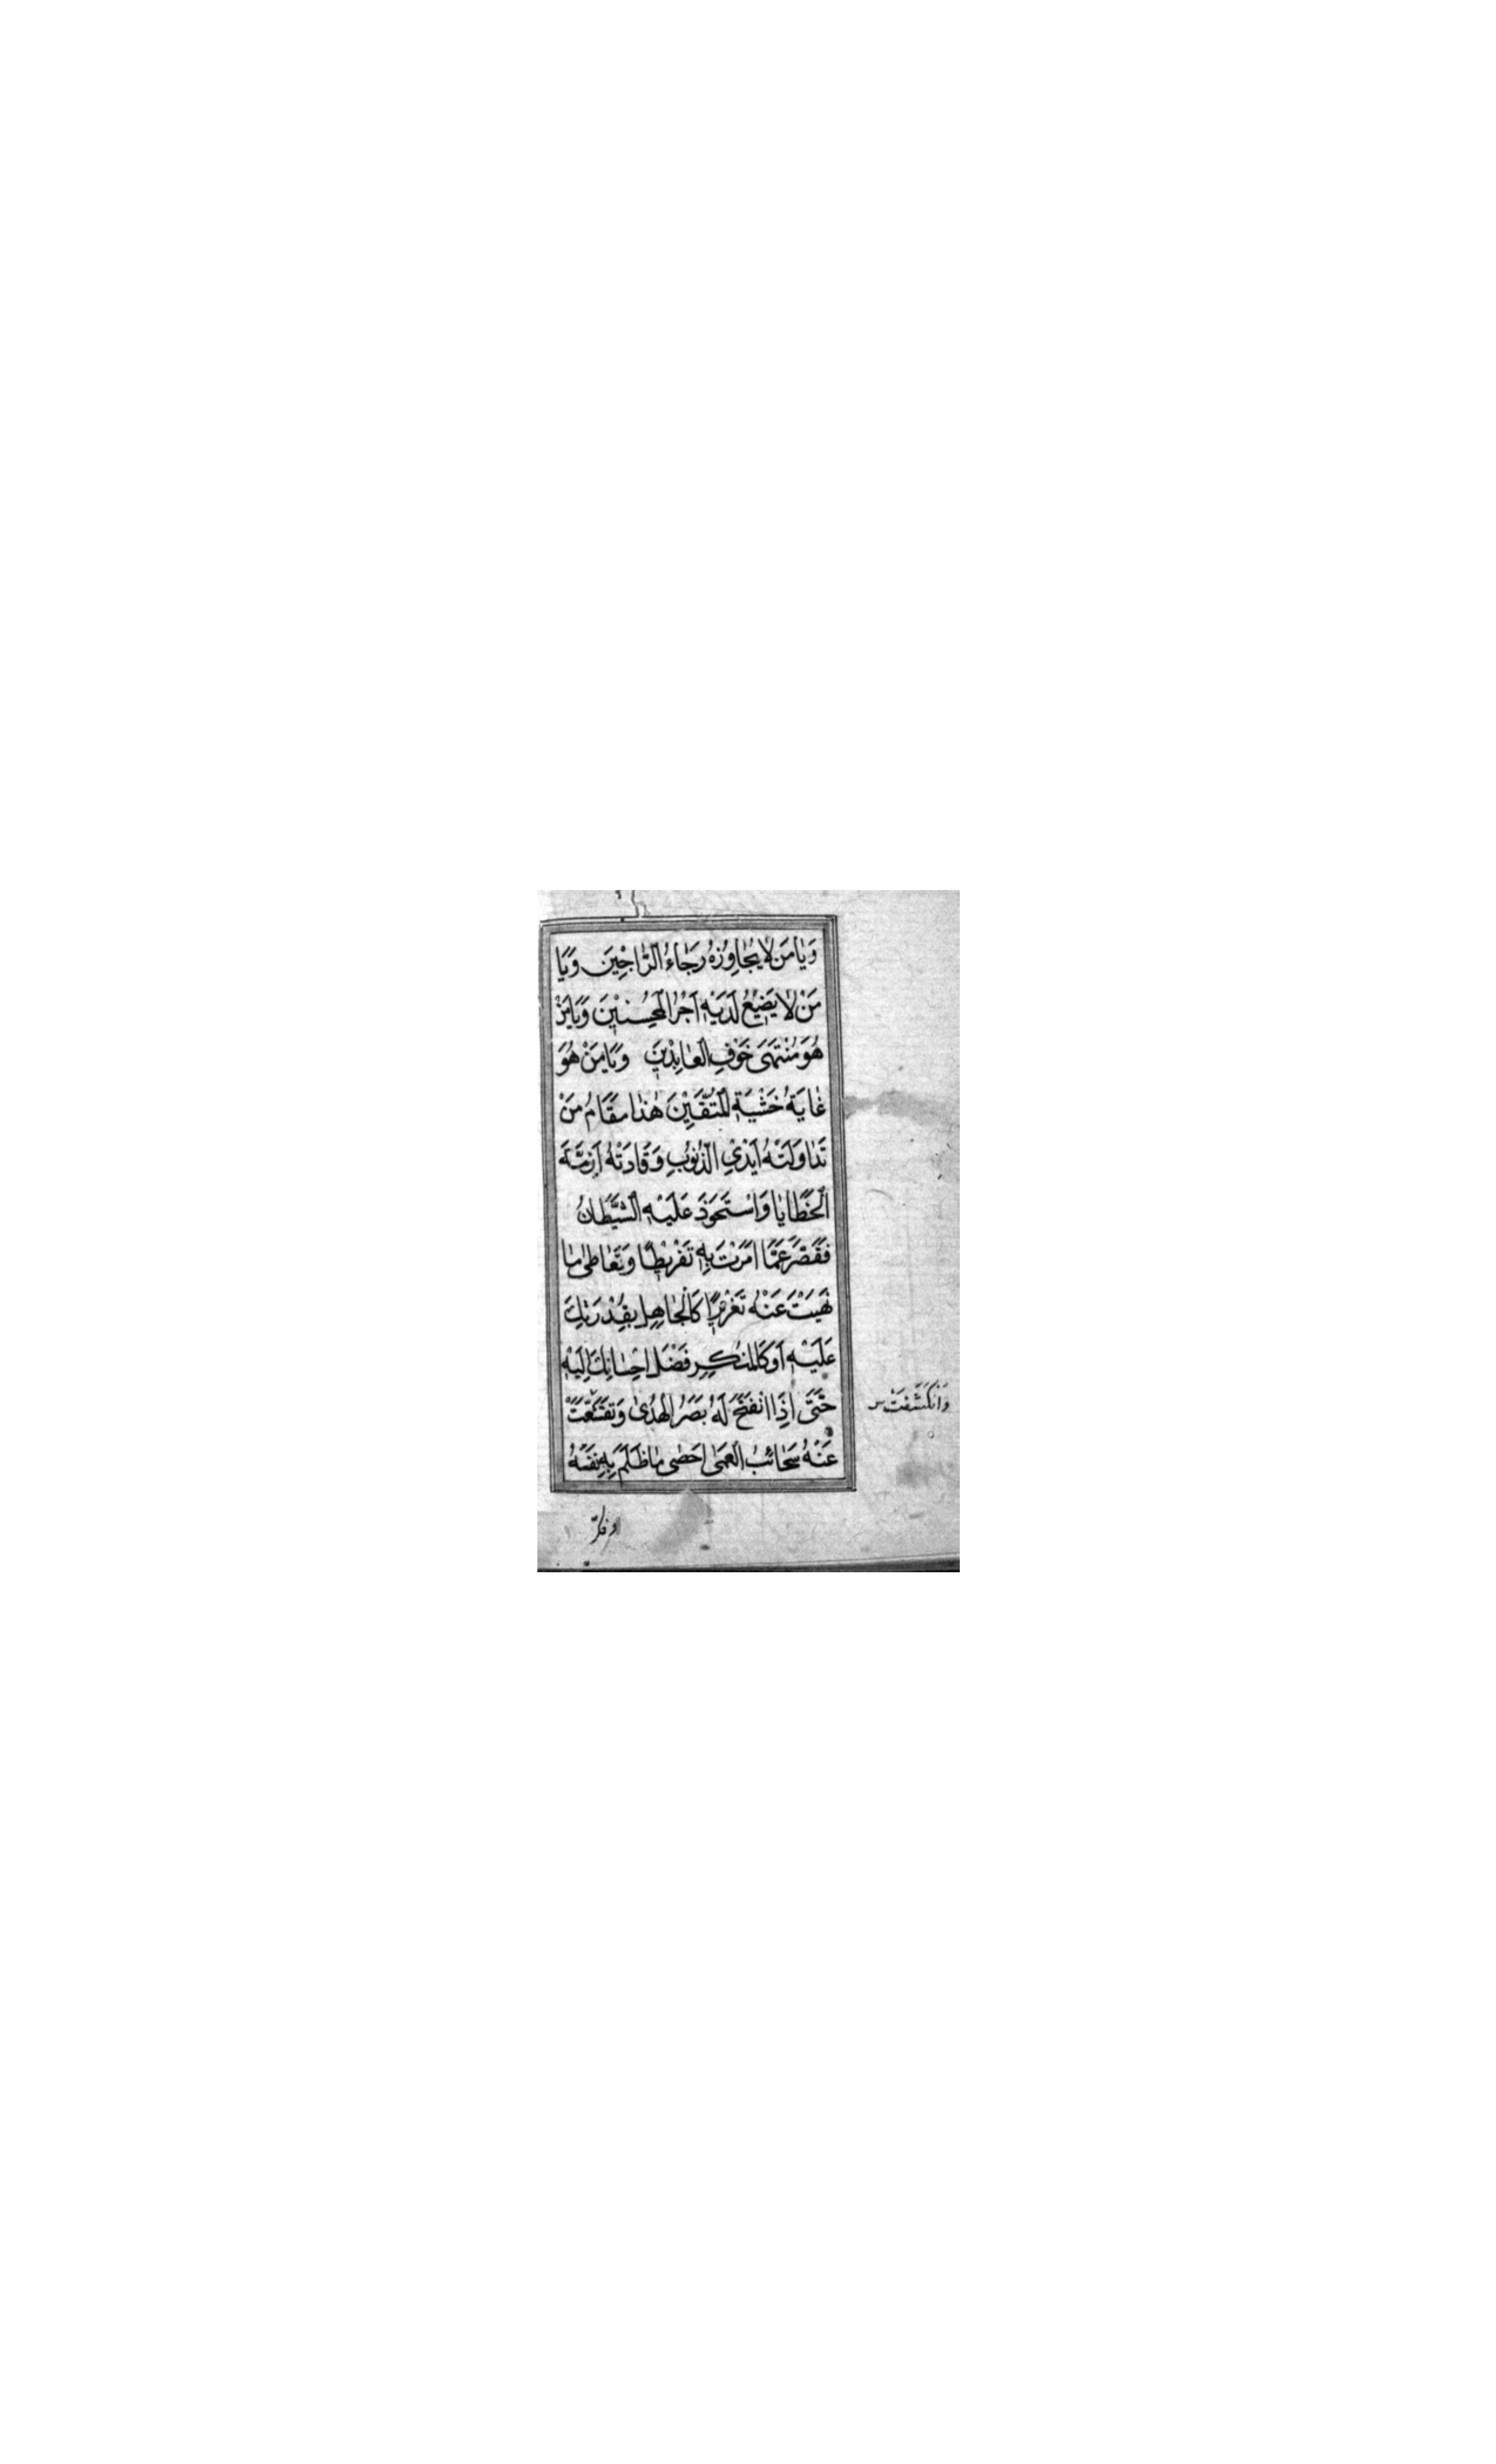 وَيَا مَن لَا يُجَاوِزُهُ رَجَاءُ الرَّاجِينَ وَيَا
مَنْ لَا يَضِيعُ لَدَيْهِ أَجْرُ الْمُحْسِنِينَ وَيَا مَنْ
هُوَ مُنْتَهَى خَوْفِ الْعَابِدِينَ وَيَا مَنْ هُوَ
غَايَةُ خَشْيَةِ الْمُتَّقِينَ هٰذَا مَقَامُ مَنْ
تَدَاوَلَتْهُ أَيْدِي الذُّنُوبِ وَقَادَتْهُ أَزِمَّةُ
الْخَطَايَا وَاسْتَحْوَذَ عَلَيْهِ الشَّيْطَانُ
فَقَصَّرَ عَمَّا أَمَرْتَ بِهِ تَفْرِيطًا وَتَعَاطَى مَا
نَهَيْتَ عَنْهُ تَغْرِيرًا كَالْجَاهِلِ بِقُدْرَتِكَ
عَلَيْهِ أَوْ كَالْمُنْكِرِ فَضْلَ إِحْسَانِكَ إِلَيْهِ
حَتَّى إِذَا انْفَتَحَ لَهُ بَصَرُ الْهُدَى وَتَقَشَّعَتْ
وَانْكَشَفَتْ س
عَنْهُ سَحَائِبُ الْعَمَى أَحْصَى مَا ظَلَمَ بِهِ نَفْسَهُ
وفكّر